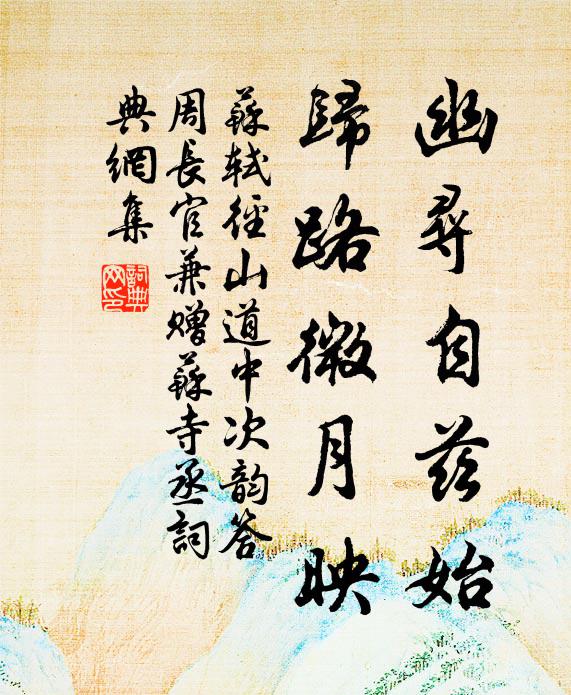 幽尋自茲始
歸路微月映
蘇軾徑山道中次韵答
周長官兼贈蘇寺丞詞
典網集
詞典網印